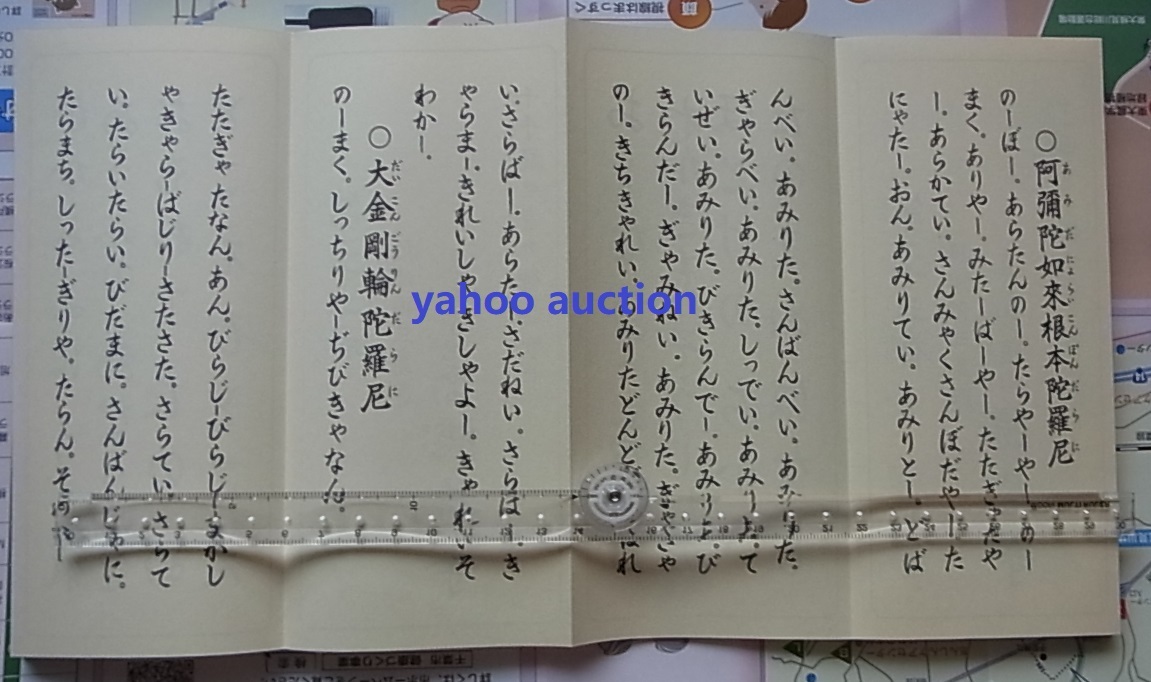 ○阿彌陀如來根本陀羅尼
あみだによらいこんぽんだらに
のーぼー。あらたんのー。たらやーやー。のー
まく。ありやー。みたーばーやー。たたぎゃたや
ー。あらかてい。さんみゃくさんぼだやーた
にゃたー。おん。あみりてい。あみりとー。どば
んべい。あみりた。さんばんべい。あみりた。
ぎゃらべい。あみりた。しっでい。あみりた。て
いぜい。あみりた。びきらんでー。あみりた。び
きらんだー。ぎゃみねい。あみりた。ぎゃぎゃ
のー。きちきゃれい。あみりたどんど
い。さらばー。あらたーさだねい。さらば。き
やらまー。きれいしゃ。きしゃよー。きゃ
わかー。
○大金剛輪陀羅尼
だいこんごうりんだらに
のーまく。しっちりやーぢびきゃなん。
たたぎゃたなん。あん。びらじーびらじーまかし
やきゃらーばじりーさたさた。さらてい。さらて
い。たらいたらい。びだまに。さんばんじゃに。
たらまち。しったーぎりや。たらん。そ
yahoo auction